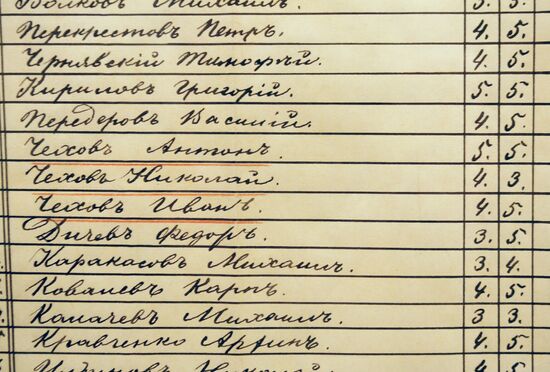 Волковъ Михаилъ. 5. 5.
Перекрестовъ Петръ. 4. 5.
Чернявскій Тимофѣй. 4. 5.
Кириловъ Григорій. 5. 5.
Передеровъ Василій. 4. 5.
Чеховъ Антонъ. 5. 5.
Чеховъ Николай. 4. 3.
Чеховъ Иванъ. 4. 5.
Дичевъ Федоръ. 3. 5.
Каракасовъ Михаилъ. 3. 4.
Ковалевъ Карпъ. 4. 5.
Калачевъ Михаилъ. 3 3.
Кравченко Арфинъ. 4. 5.
Николай. 4 5